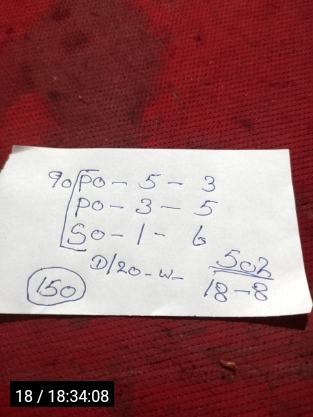 90 PO - 5 - 3
PO - 3 - 5
SO - 1 - 6
D/20 - W -
502
18 - 8
150
18 / 18:34:08